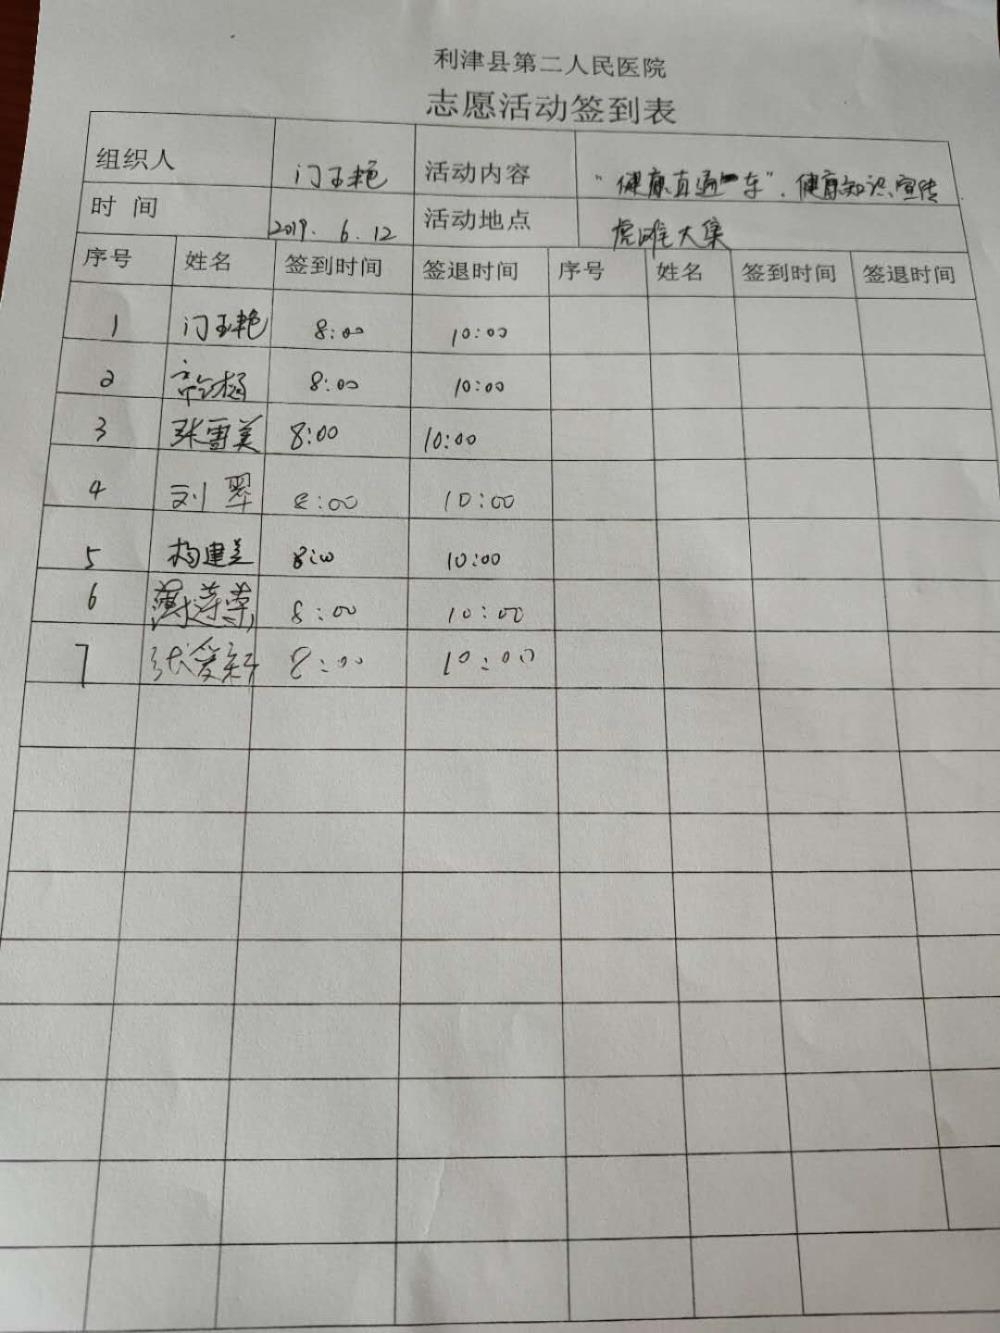 利津县第二人民医院
志愿活动签到表
组织人 门玉艳 活动内容 "健康直通车"、健康知识宣传
时 间 2019. 6. 12 活动地点 虎滩大集
序号 姓名 签到时间 签退时间 序号 姓名 签到时间 签退时间
1 门玉艳 8:00 10:00
2 8:00 10:00
3 张雪美 8:00 10:00
4 刘翠 8:00 10:00
5 8:00 10:00
6 8:00 10:00
7 张爱 8:00 10:00